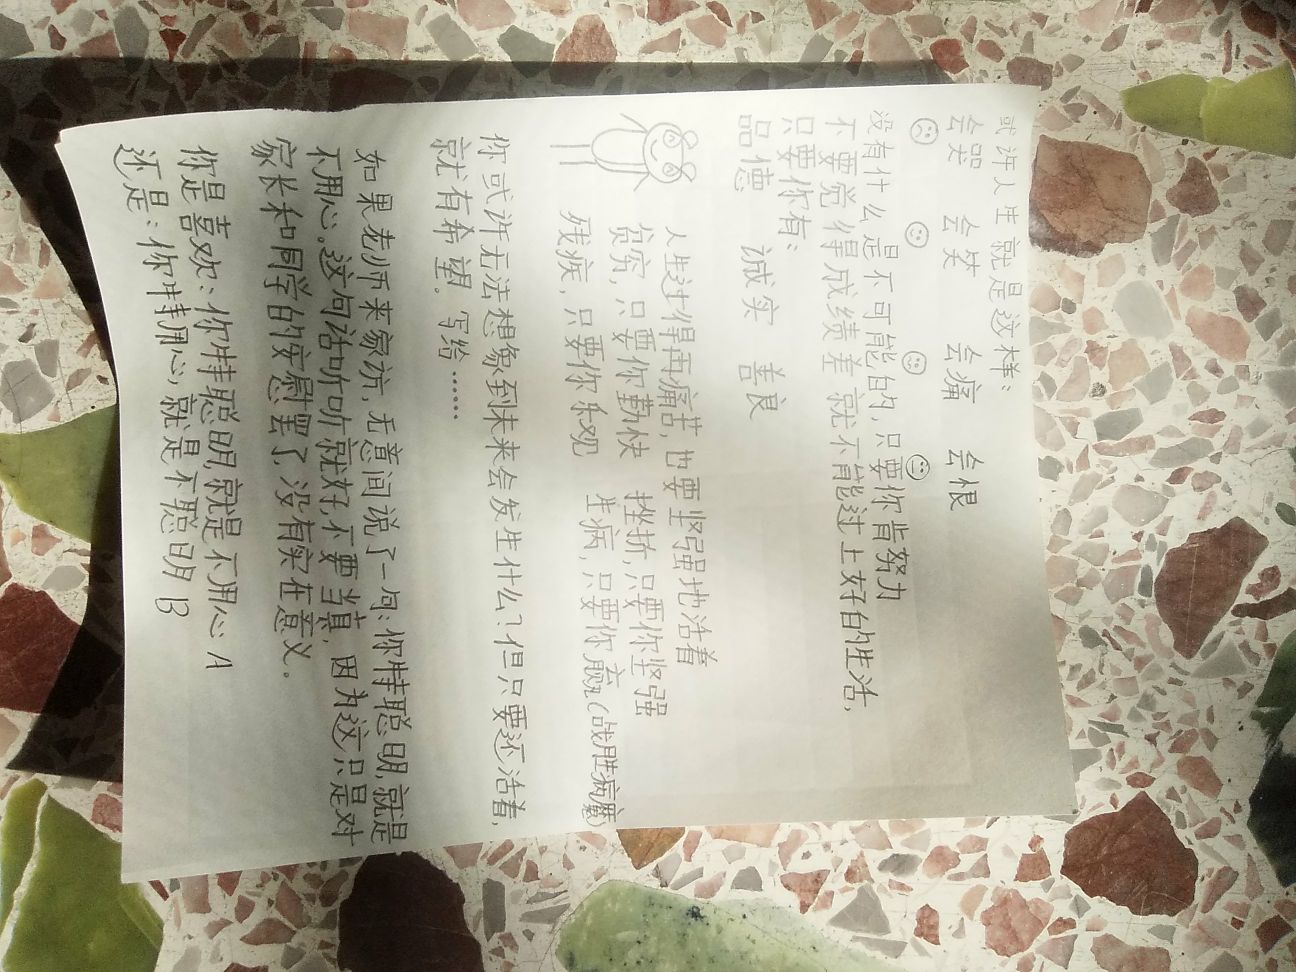 或许人生就是这样：
会哭 会笑 会痛 会恨
没有什么是不可能的，只要你肯努力
不要觉得成绩差就不能过上好的生活，
只要你有：
品德 诚实 善良
人生过得再痛苦，也要坚强地活着
贫穷，只要你勤快 挫折，只要你坚强
残疾，只要你乐观 生病，只要你赢（战胜病魔）
你或许无法想象到未来会发生什么？但只要还活着，
就有希望。写给……
如果老师来家访，无意间说了一句：你特聪明，就是
不用心。这句话听听就好，不要当真，因为这只是对
家长和同学的安慰罢了，没有实在意义。
你是喜欢：你特聪明，就是不用心 A
还是：你特用心，就是不聪明 B